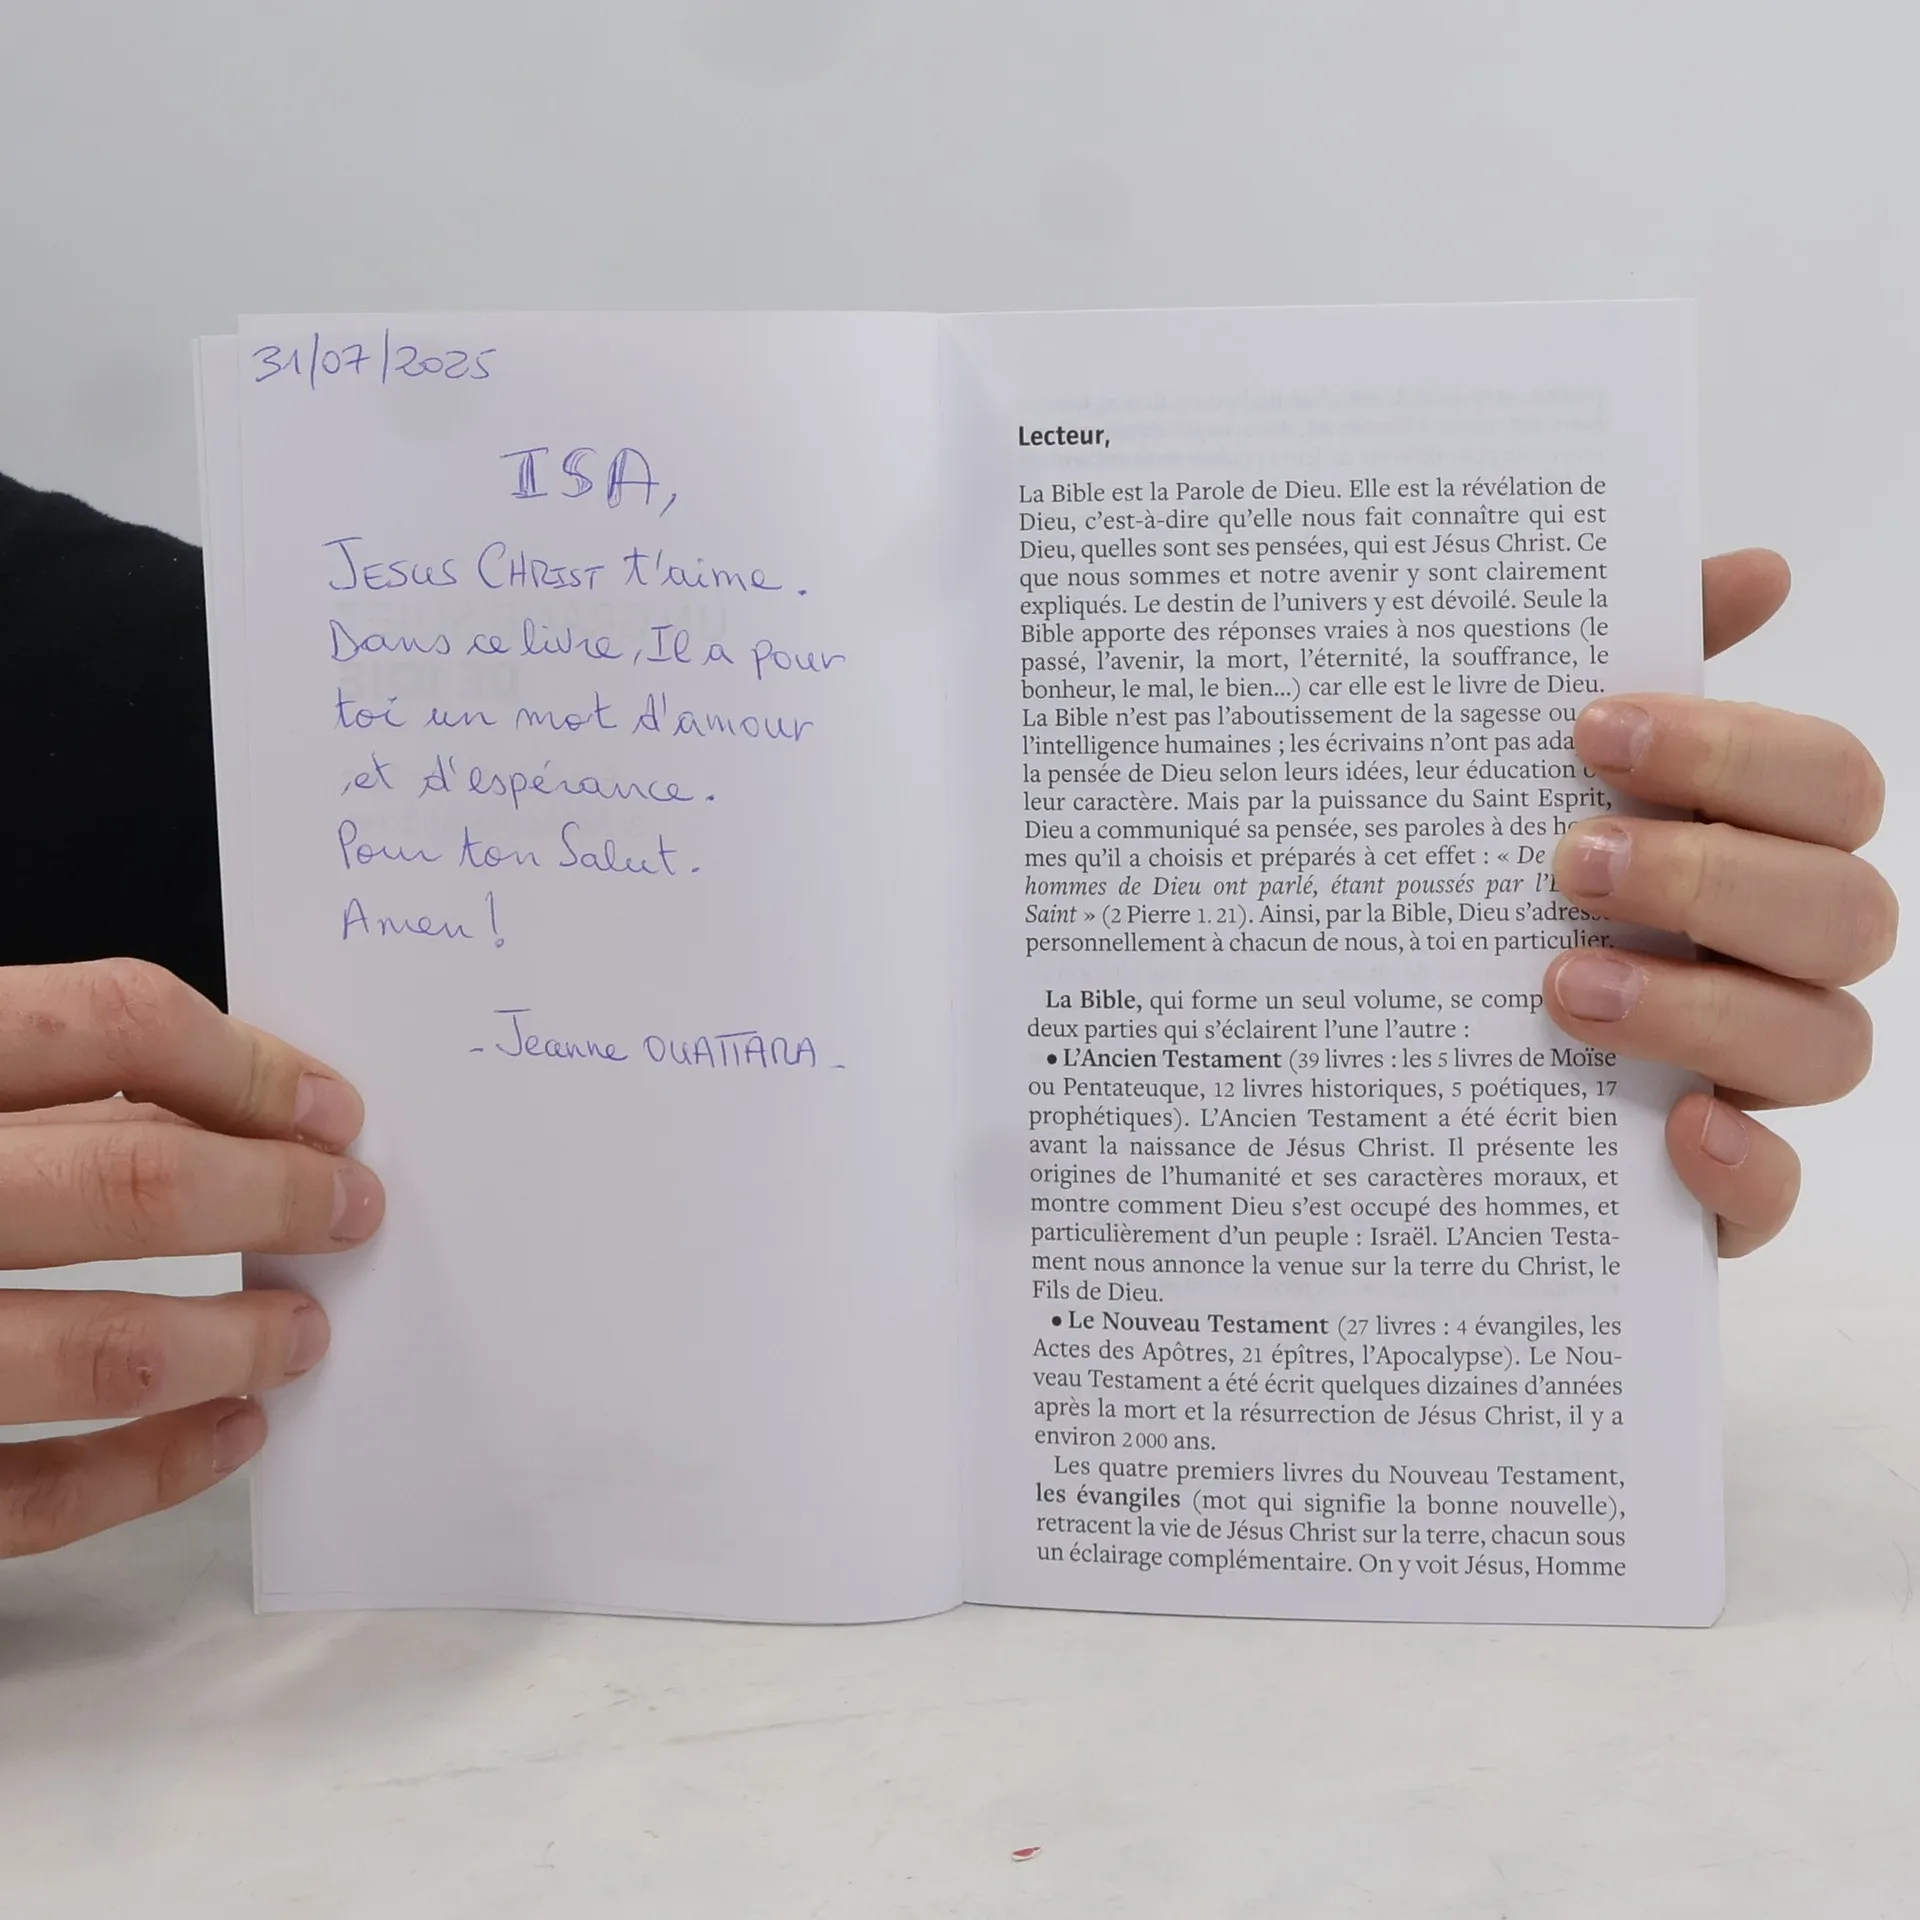 31/07/2025
ISA,
JESUS CHRIST t'aime.
Dans ce livre, Il a pour
toi un mot d'amour
et d'espérance.
Pour ton Salut.
Amen !
- Jeanne OUATTARA -
Lecteur,
La Bible est la Parole de Dieu. Elle est la révélation de
Dieu, c'est-à-dire qu'elle nous fait connaître qui est
Dieu, quelles sont ses pensées, qui est Jésus Christ. Ce
que nous sommes et notre avenir y sont clairement
expliqués. Le destin de l'univers y est dévoilé. Seule la
Bible apporte des réponses vraies à nos questions (le
passé, l'avenir, la mort, l'éternité, la souffrance, le
bonheur, le mal, le bien...) car elle est le livre de Dieu.
La Bible n'est pas l'aboutissement de la sagesse ou
l'intelligence humaines ; les écrivains n'ont pas
la pensée de Dieu selon leurs idées, leur éducation
leur caractère. Mais par la puissance du Saint Esprit,
Dieu a communiqué sa pensée, ses paroles à des
mes qu'il a choisis et préparés à cet effet : « De
hommes de Dieu ont parlé, étant poussés par
Saint » (2 Pierre 1. 21). Ainsi, par la Bible, Dieu s'adresse
personnellement à chacun de nous, à toi en particulier.
La Bible, qui forme un seul volume, se
deux parties qui s'éclairent l'une l'autre :
• L'Ancien Testament (39 livres : les 5 livres de Moïse
ou Pentateuque, 12 livres historiques, 5 poétiques, 17
prophétiques). L'Ancien Testament a été écrit bien
avant la naissance de Jésus Christ. Il présente les
origines de l'humanité et ses caractères moraux, et
montre comment Dieu s'est occupé des hommes, et
particulièrement d'un peuple : Israël. L'Ancien Testa-
ment nous annonce la venue sur la terre du Christ, le
Fils de Dieu.
• Le Nouveau Testament (27 livres : 4 évangiles, les
Actes des Apôtres, 21 épîtres, l'Apocalypse). Le Nou-
veau Testament a été écrit quelques dizaines d'années
après la mort et la résurrection de Jésus Christ, il y a
environ 2 000 ans.
Les quatre premiers livres du Nouveau Testament,
les évangiles (mot qui signifie la bonne nouvelle),
retracent la vie de Jésus Christ sur la terre, chacun sous
un éclairage complémentaire. On y voit Jésus, Homme